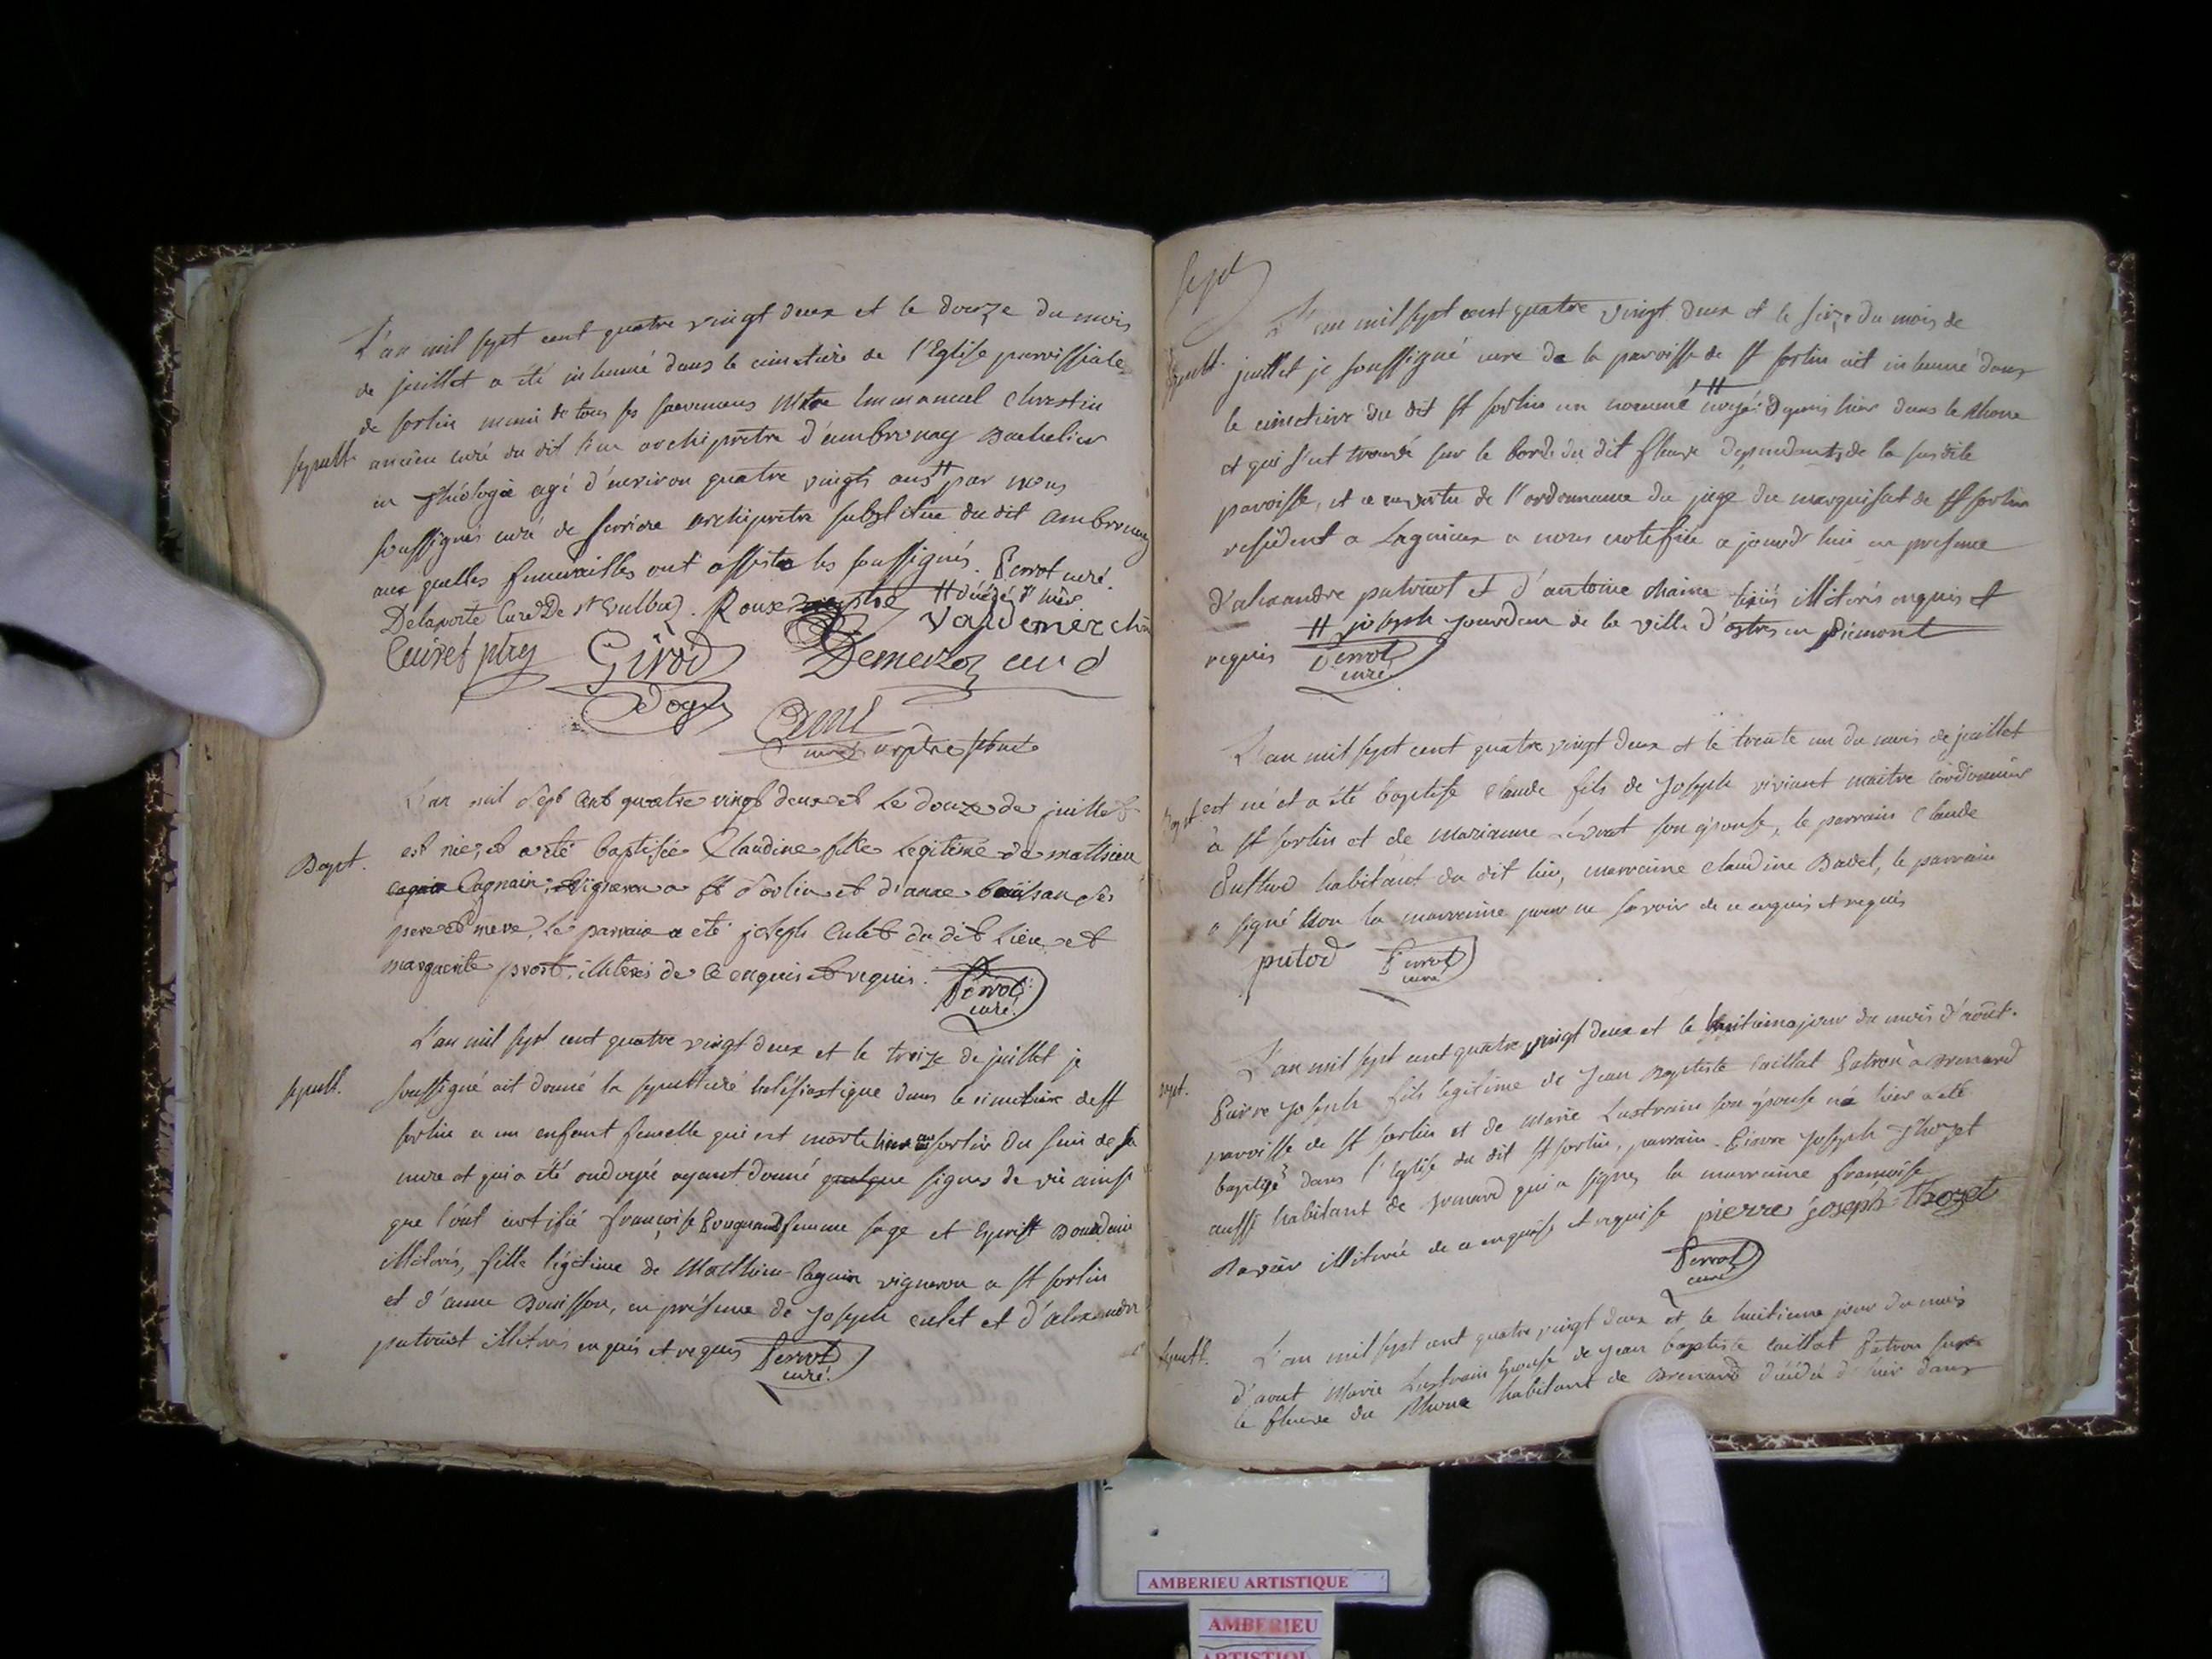 L'an mil sept cent quatre vingt deux et le douze du mois
de juillet a été inhumé dans le cimetiere de l'Eglise paroissiale
de sorlin muni de tous ses sacremens Mtre Emmanuel Chrestin
sepult. ancien curé du dit lieu archipretre d'ambronay Bachelier
en Théologie agé d'environ quatre vingts ans # par nous
soussignés curé de serriere archipretre substitue du dit ambronay
aux quelles funerailles ont assisté les soussignés. Perrot curé.
# décédé d'hier
Delaporte Curé De st Vulbas. Roux
Cuiret ptre Girod Demerloz curé
curé archiptre
L'an mil sept cent quatre vingt deux et le douze de juillet
Bapt. est née, et a été baptisée Claudine fille legitime de mathieu
Cagnain, vigneron a st Sorlin et d'anne bouisson ses
pere et mere, le parrain a été joseph Culet du dit Lieu et
marguerite prost, illiterés de ce enquis et requis. Perrot
curé.
L'an mil sept cent quatre vingt deux et le treize de juillet je
sepult. soussigné ait donné la sepulture dans le cimetiere de st
sorlin a un enfant femelle qui est morte hier au sortir du sein de sa
mere et qui a été ondoyée ayant donné quelque signes de vie ainsi
que l'ont certifié françoise femme sage et
illiterés, fille légitime de Matthieu Cagnin vigneron a st sorlin
et d'anne Bouisson, en présence de Joseph culet et d'alexandre
patruist illiterés enquis et requis Perrot
curé.
sept
L'an mil sept cent quatre vingt deux et le seize du mois de
sepult. juillet je soussigné curé de la paroisse de st sorlin ait inhumé dans
le cimetiere du dit st sorlin un nommé # noyé depuis hier dans le Rhone
et qui s'est trouvé sur le bord du dit fleuve dependant de la susdite
paroisse, et ce en vertu de l'ordonnance du juge du marquisat de st sorlin
resident a Lagnieux a nous notifiée a jourd'hui en presence
d'alexandre patruist et d'antoine illiterés enquis et
# joseph jourdan de la ville d'astres en piemont
requis Perrot
curé
L'an mil sept cent quatre vingt deux et le trente un du mois de juillet
Bapt. est né et a été baptisé Claude fils de Joseph viviant maitre cordonnier
à st sorlin et de marianne Levrat son epouse, le parrain Claude
habitant du dit lieu, marraine Claudine Badel, le parrain
a signé non la marraine pour ne savoir de ce enquis et requis
putod Perrot
curé
L'an mil sept cent quatre vingt deux et le huitieme jour du mois d'aout.
Bapt. Pierre Joseph fils legitime de Jean Baptiste Caillat Patron à Brenard
paroisse de st sorlin et de Marie Lustrain son epouse né hier a été
baptisé dans l'Eglise du dit st sorlin, parrain. Pierre Joseph Thozet
aussi habitant de qui a signe, la marraine françoise
Ravier illiterée de ce enquise et requise pierre joseph Thozet
Perrot
curé
sepult. L'an mil sept cent quatre vingt deux et le huitieme jour du mois
d'aout Marie Lustrain Epouse de Jean baptiste Caillat Patron sur
le fleuve du Rhone habitant de Brenard décédé d'hier dans
AMBERIEU ARTISTIQUE
AMBERIEU
ARTISTIQUE